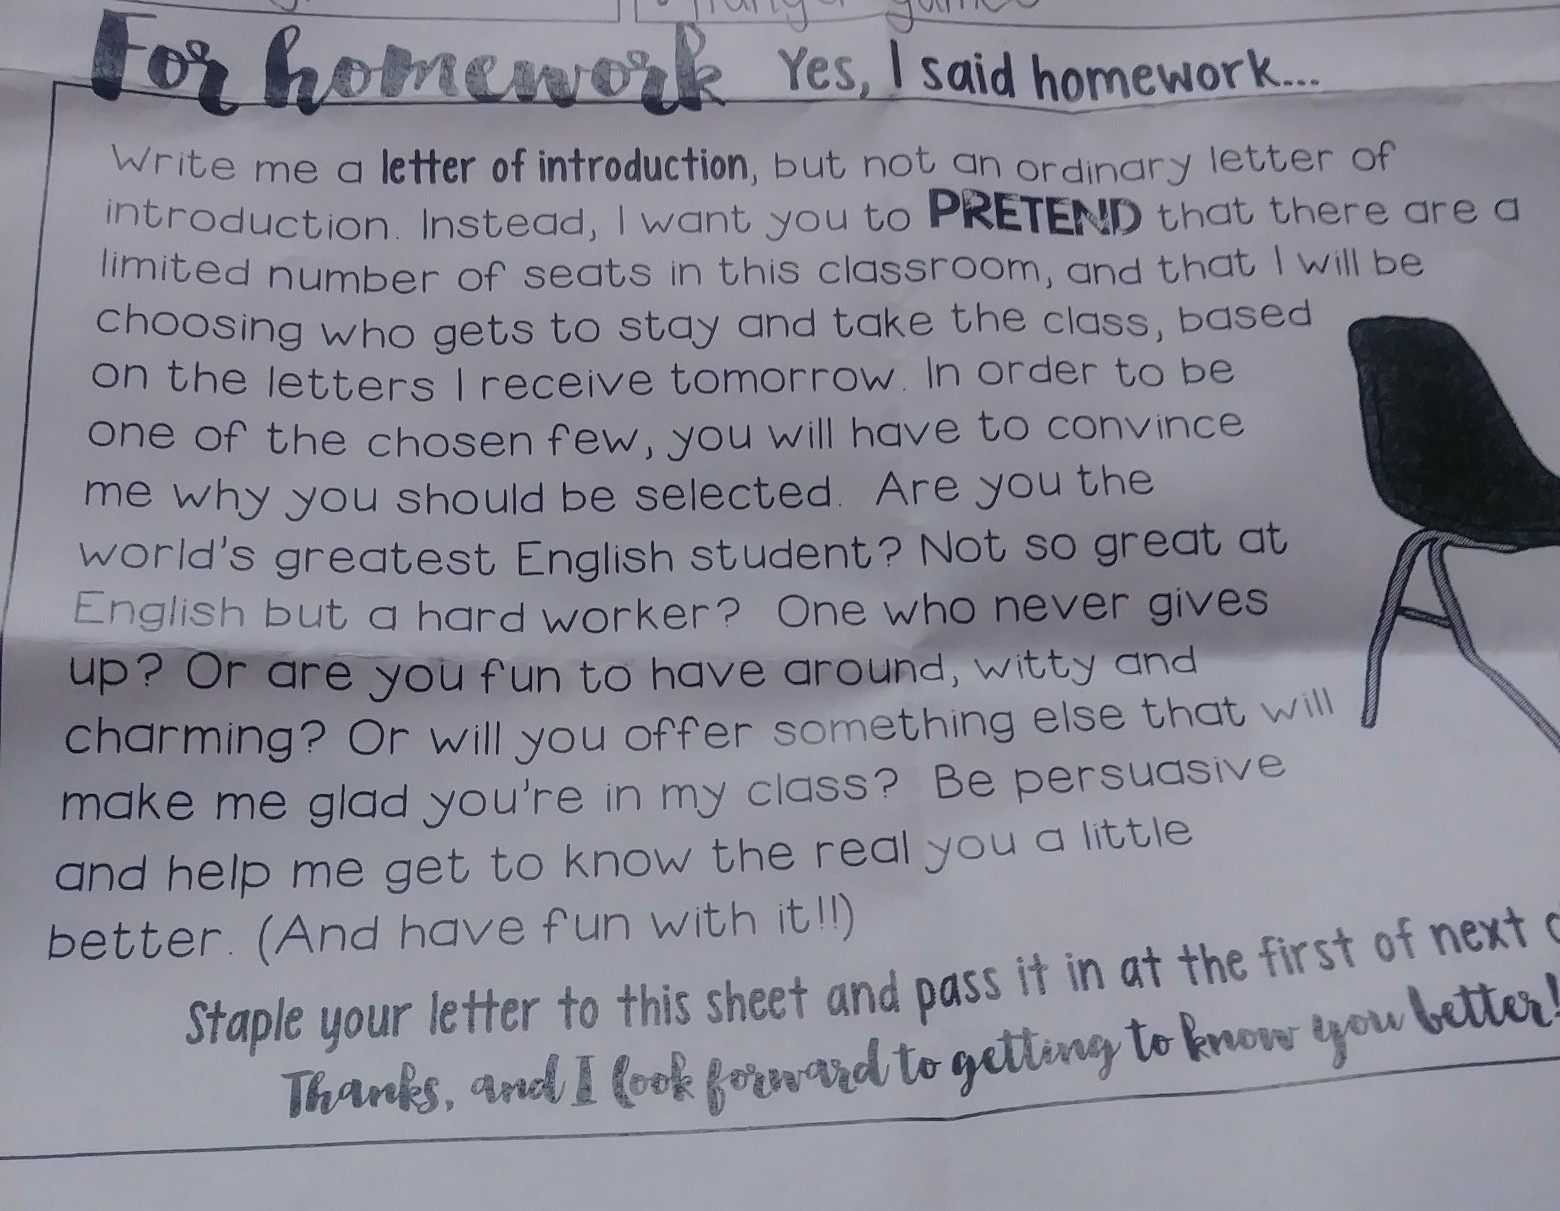 For homework Yes, I said homework...
Write me a letter of introduction, but not an ordinary letter of
introduction. Instead, I want you to PRETEND that there are a
limited number of seats in this classroom, and that I will be
choosing who gets to stay and take the class, based
on the letters I receive tomorrow. In order to be
one of the chosen few, you will have to convince
me why you should be selected. Are you the
world's greatest English student? Not so great at
English but a hard worker? One who never gives
up? Or are you fun to have around, witty and
charming? Or will you offer something else that will
make me glad you're in my class? Be persuasive
and help me get to know the real you a little
better. (And have fun with it!!)
Staple your letter to this sheet and pass it in at the first of next
Thanks, and I look forward to getting to know you better!